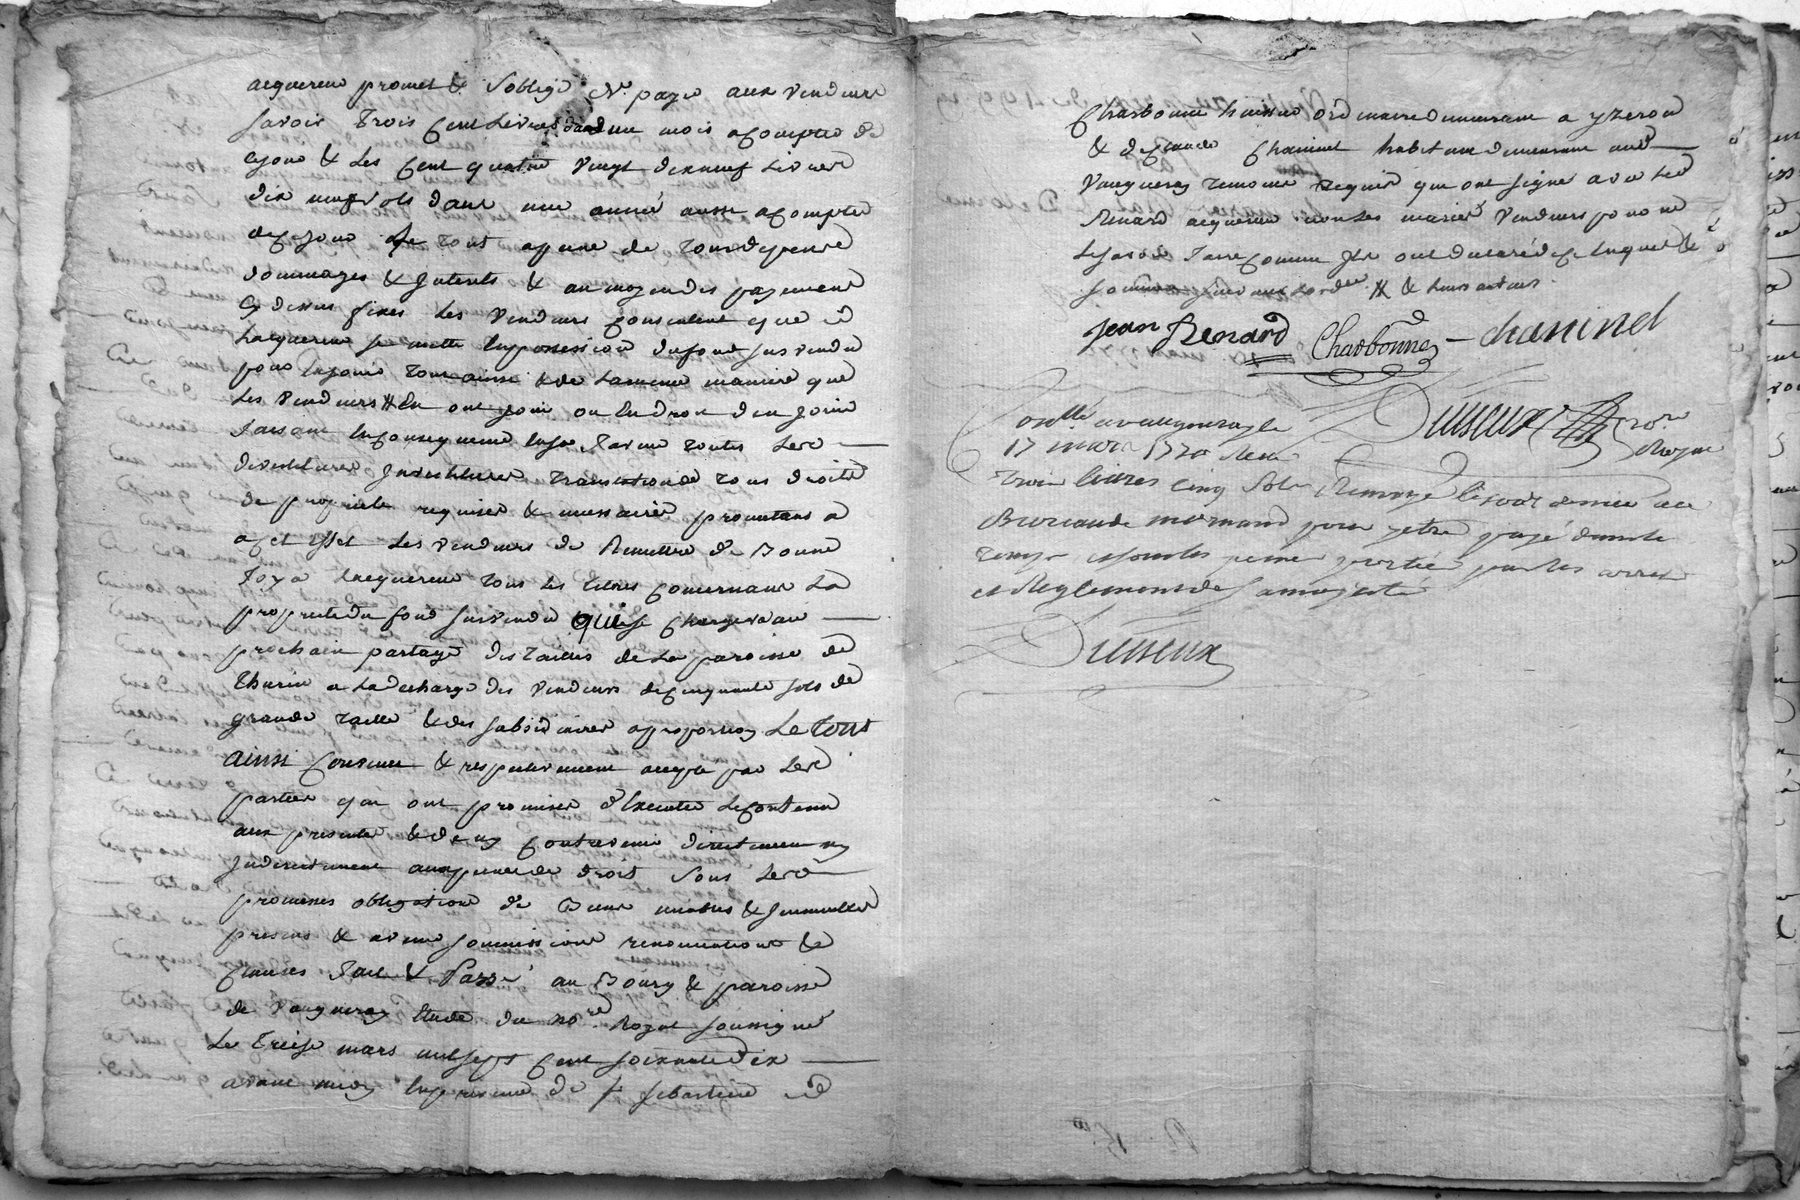 acquereur promet & s'oblige de payer aux vendeurs
savoir trois cent livres dans un mois acompter de
cejour & les cent quatre vingt dixneuf livres
dix neuf sols dans une année aussi acompter
de cejour le tout apeine de tous depens
dommages & interets & au moyen des payement
cy dessus fixes les vendeurs consentent que
lacquereur se mette en possession du fond susvendu
pour en jouir tout ainsi & de la meme maniere que
les vendeurs en ont joui ou eu droit d'en jouir
faisant en consequence en sa faveur toutes les
devestitures investitures translation de tous droits
de propriete requises & necessaires promettans a
a cet effet les vendeurs de remettre de bonne
foy a lacquereur tous les titres concernant la
propriete du fond susvendu qui se chargera au
prochain partage des tailles de la paroisse de
thurin a la decharge des vendeurs de cinquante sols de
grande taille & des subsidiaires aproportion Le tout
ainsi convenu & respectivement accepté par les
parties qui ont promises d'executer le contenu
aux presentes & de ny contrevenir directement ny
indirectement aux peines de droit sous les
promesses obligations de biens meubles & immeubles
presens & avenir soumissions renonciations &
clauses fait & Passé au Bourg & paroisse
de vaugneray etude du nore. Royal soussigné
Le treize mars mil sept cent soixante dix
avant midy en presence de sr sebastien
Charbonnier huissier ordinaire demeurant a yzeron
& de claude Chaninel habitant demeurant aud
vaugneray temoins requis qui ont signé avec led
Renard acquereur non les mariés vendeurs pour ne
le savoir faire comme ils ont declaré de ce enquis &
sommés
jean Renard Charbonnier chaninel
Dusseux nore
Royal
Con.llé a vaugneray le
17 mars 1770 Reçu
trois livres cinq sols Renvoyé
pour y etre payé dans le
temps & sous les peines portées par les arrets
et Reglemens de sa majesté
Dusseux